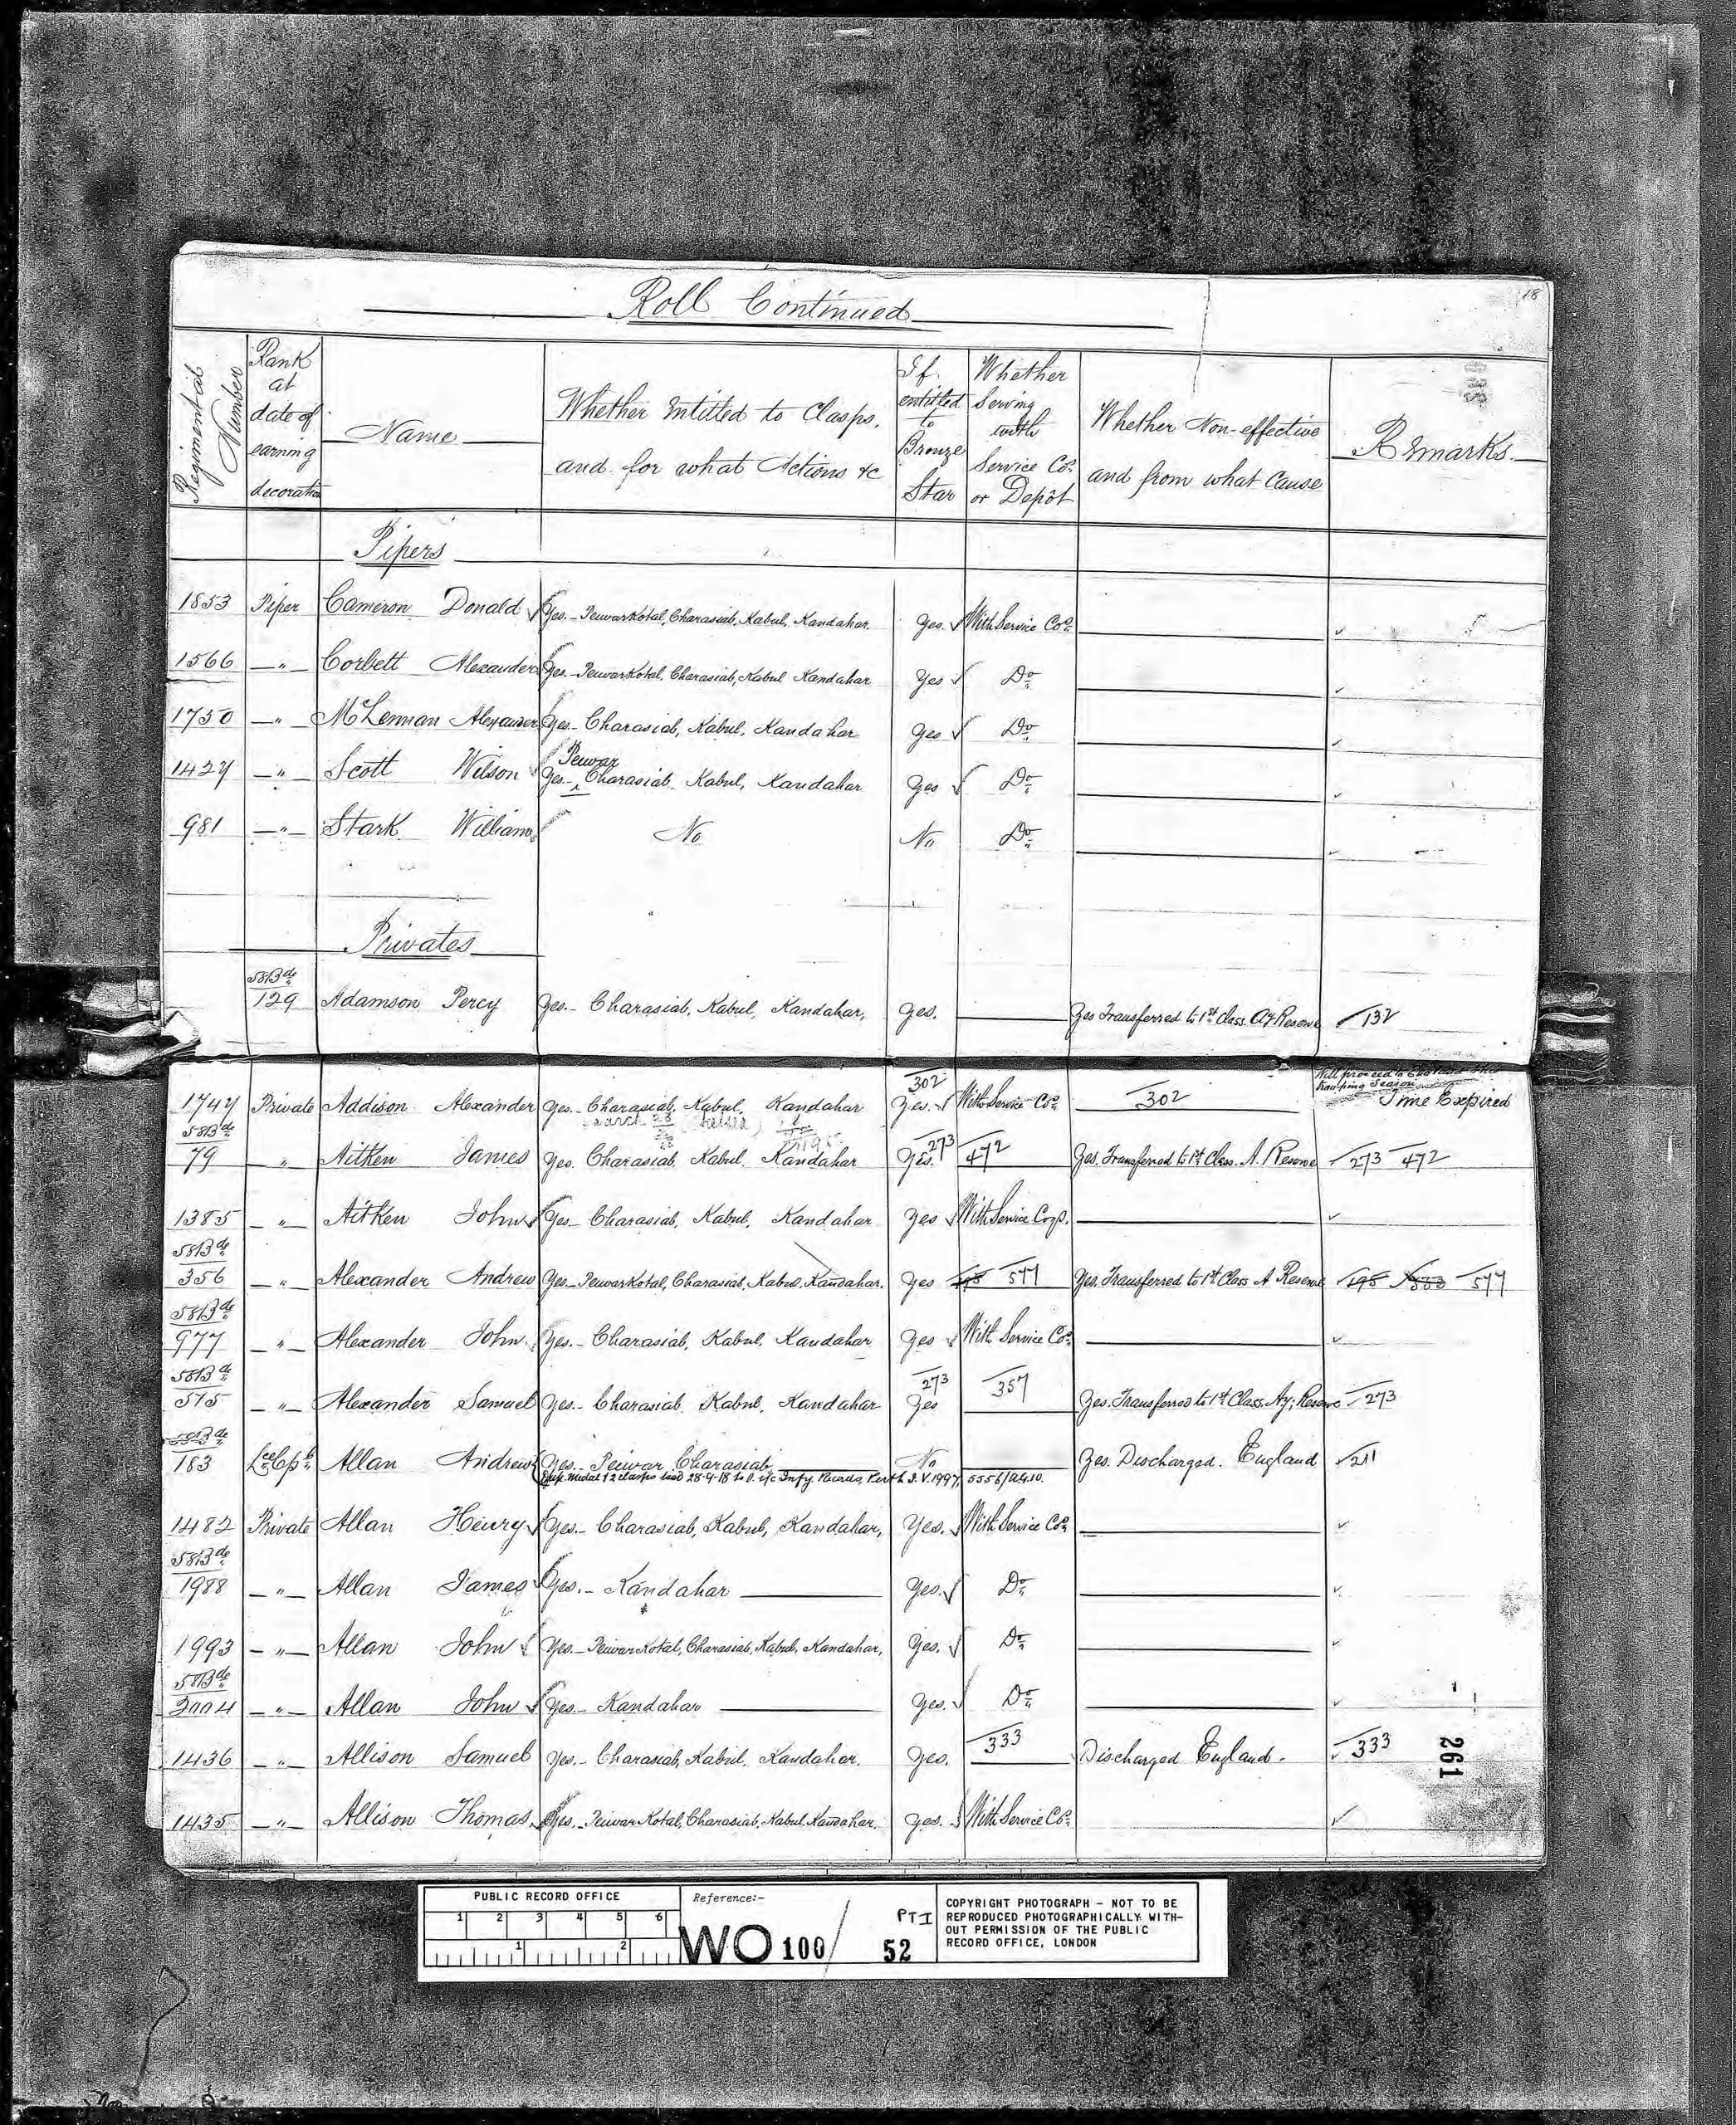 18
Roll Continued
Regimental Number
Rank at date of earning decoration
Name
Whether Entitled to Clasps, and for what Actions &c
If entitled to Bronze Star
Whether Serving with Service Cos. or Depôt
Whether Non-effective and from what Cause
Remarks
Pipers
1853 Piper Cameron Donald Yes. - Peiwar Kotal, Charasiab, Kabul, Kandahar. Yes. With Service Cos.
1566 — " — Corbett Alexander Yes. - Peiwar Kotal, Charasiab, Kabul Kandahar Yes Do
1750 — " McLennan Alexander Yes - Charasiab, Kabul, Kandahar Yes Do
Peiwar
1427 — " — Scott Wilson Yes - Charasiab Kabul, Kandahar Yes Do
981 — " — Stark William No No Do
Privates
58Bde
129 Adamson Percy Yes. - Charasiab, Kabul, Kandahar, Yes. Yes Transferred to 1st Class Ay Reserve 132
302 Will proceed to England this
trooping season
1747 Private Addison Alexander Yes. - Charasiab, Kabul, Kandahar Yes. With Service Cos. 302 Time Expired
58Bde 273
79 " Aitken James Yes. Charasiab, Kabul. Kandahar Yes. 472 Yes. Transferred to 1st Class. A. Reserve 273 472
1385 — " Aitken John Yes - Charasiab, Kabul, Kandahar Yes With Service Coys.
58Bde
356 — " — Alexander Andrew Yes - Peiwar Kotal, Charasiab, Kabul, Kandahar. Yes 577 Yes. Transferred to 1st Class A Reserve 195 333 577
58Bde
977 — " — Alexander John Yes. - Charasiab, Kabul, Kandahar Yes With Service Cos.
58Bde 273
515 — " — Alexander Samuel Yes. - Charasiab. Kabul, Kandahar Yes 357 Yes. Transferred to 1st Class. Ay; Reserve 273
58Bde
183 Lce Cpl Allan Andrew Yes. - Peiwar Charasiab No Yes. Discharged. England 211
Dup. medal & 2 clasps issd 28-9-18 to O. i/c Infy. Records, Perth I.V. 1997, 5556/AG10.
1482 Private Allan Henry Yes. - Charasiab, Kabul, Kandahar, Yes. With Service Cos.
58Bde
1988 — " — Allan James Yes. - Kandahar Yes. Do
1993 — " — Allan John Yes. - Peiwar Kotal, Charasiab, Kabul, Kandahar, Yes. Do
58Bde
2004 — " — Allan John Yes - Kandahar Yes. Do
1436 — " — Allison Samuel Yes. - Charasiab, Kabul, Kandahar. Yes. 333 Discharged England. 333
1435 — " — Allison Thomas Yes. - Peiwar Kotal, Charasiab, Kabul, Kandahar. Yes. With Service Cos.
261
PUBLIC RECORD OFFICE
1 2 3 4 5 6
1 2
Reference:-
WO 100/ 52 PT I
COPYRIGHT PHOTOGRAPH - NOT TO BE
REPRODUCED PHOTOGRAPHICALLY WITH-
OUT PERMISSION OF THE PUBLIC
RECORD OFFICE, LONDON